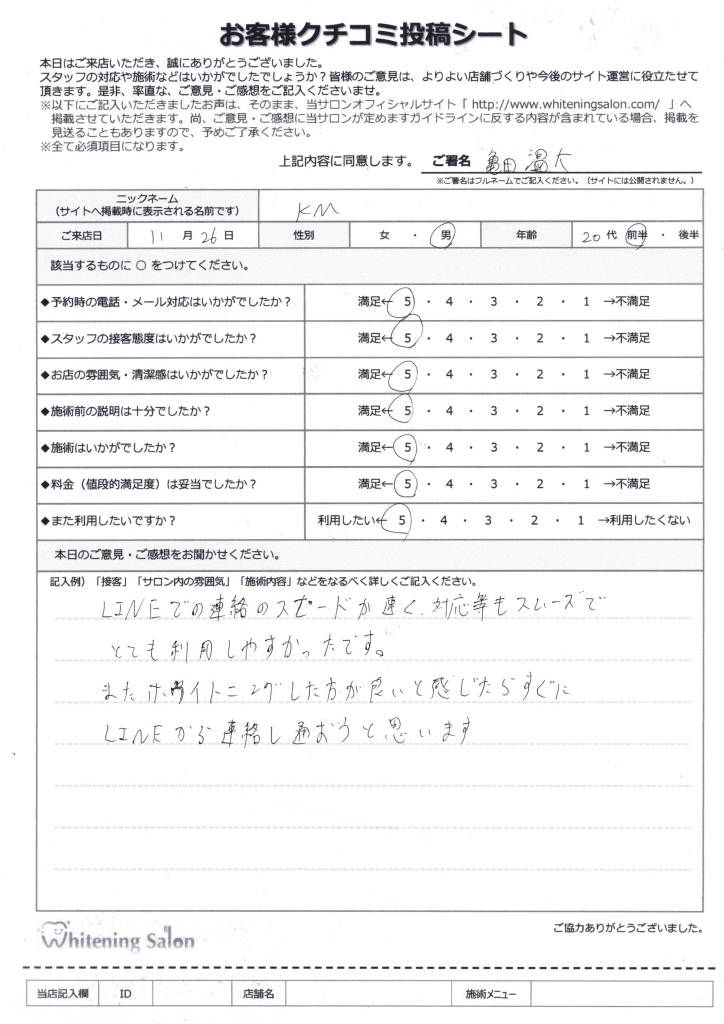 お客様クチコミ投稿シート
本日はご来店いただき、誠にありがとうございました。
スタッフの対応や施術などはいかがでしたでしょうか？皆様のご意見は、よりよい店舗づくりや今後のサイト運営に役立たせて
頂きます。是非、率直な、ご意見・ご感想をご記入くださいませ。
※以下にご記入いただきましたお声は、そのまま、当サロンオフィシャルサイト「 http://www.whiteningsalon.com/ 」へ
掲載させていただきます。尚、ご意見・ご感想に当サロンが定めますガイドラインに反する内容が含まれている場合、掲載を
見送ることもありますので、予めご了承ください。
※全て必須項目になります。
上記内容に同意します。 ご署名 亀田 温大
※ご署名はフルネームでご記入ください。（サイトには公開されません。）
ニックネーム
（サイトへ掲載時に表示される名前です） KM
ご来店日 11 月 26 日 性別 女 ・ 男 年齢 20 代 前半 ・ 後半
該当するものに ○ をつけてください。
◆予約時の電話・メール対応はいかがでしたか？ 満足← 5 ・ 4 ・ 3 ・ 2 ・ 1 →不満足
◆スタッフの接客態度はいかがでしたか？ 満足← 5 ・ 4 ・ 3 ・ 2 ・ 1 →不満足
◆お店の雰囲気・清潔感はいかがでしたか？ 満足← 5 ・ 4 ・ 3 ・ 2 ・ 1 →不満足
◆施術前の説明は十分でしたか？ 満足← 5 ・ 4 ・ 3 ・ 2 ・ 1 →不満足
◆施術はいかがでしたか？ 満足← 5 ・ 4 ・ 3 ・ 2 ・ 1 →不満足
◆料金（値段的満足度）は妥当でしたか？ 満足← 5 ・ 4 ・ 3 ・ 2 ・ 1 →不満足
◆また利用したいですか？ 利用したい← 5 ・ 4 ・ 3 ・ 2 ・ 1 →利用したくない
本日のご意見・ご感想をお聞かせください。
記入例）「接客」「サロン内の雰囲気」「施術内容」などをなるべく詳しくご記入ください。
LINEでの連絡のスピードが速く、対応等もスムーズで
とても利用しやすかったです。
またホワイトニングした方が良いと感じたらすぐに
LINEから連絡し通おうと思います
ご協力ありがとうございました。
Whitening Salon
当店記入欄 ID 店舗名 施術メニュー